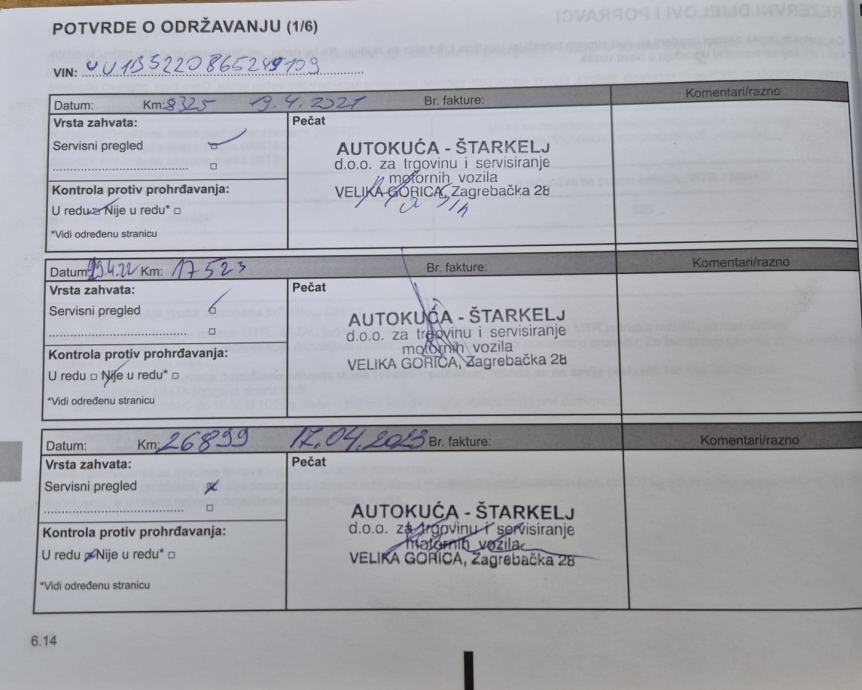 POTVRDE O ODRŽAVANJU (1/6)
VIN: UU1B5220865249109
Datum: Km: 8325 19.4.2021 Br. fakture: Komentari/razno
Vrsta zahvata: Pečat
Servisni pregled
AUTOKUĆA - ŠTARKELJ
d.o.o. za trgovinu i servisiranje
motornih vozila
Kontrola protiv prohrđavanja:
VELIKA GORICA, Zagrebačka 28
U redu Nije u redu*
*Vidi određenu stranicu
Datum: 19.4.22 Km: 17523 Br. fakture: Komentari/razno
Vrsta zahvata: Pečat
Servisni pregled
AUTOKUĆA - ŠTARKELJ
d.o.o. za trgovinu i servisiranje
motornih vozila
Kontrola protiv prohrđavanja:
VELIKA GORICA, Zagrebačka 28
U redu Nije u redu*
*Vidi određenu stranicu
Datum: Km: 26899 17.04.2023 Br. fakture: Komentari/razno
Vrsta zahvata: Pečat
Servisni pregled
AUTOKUĆA - ŠTARKELJ
d.o.o. za trgovinu i servisiranje
motornih vozila
Kontrola protiv prohrđavanja:
VELIKA GORICA, Zagrebačka 28
U redu Nije u redu*
*Vidi određenu stranicu
6.14